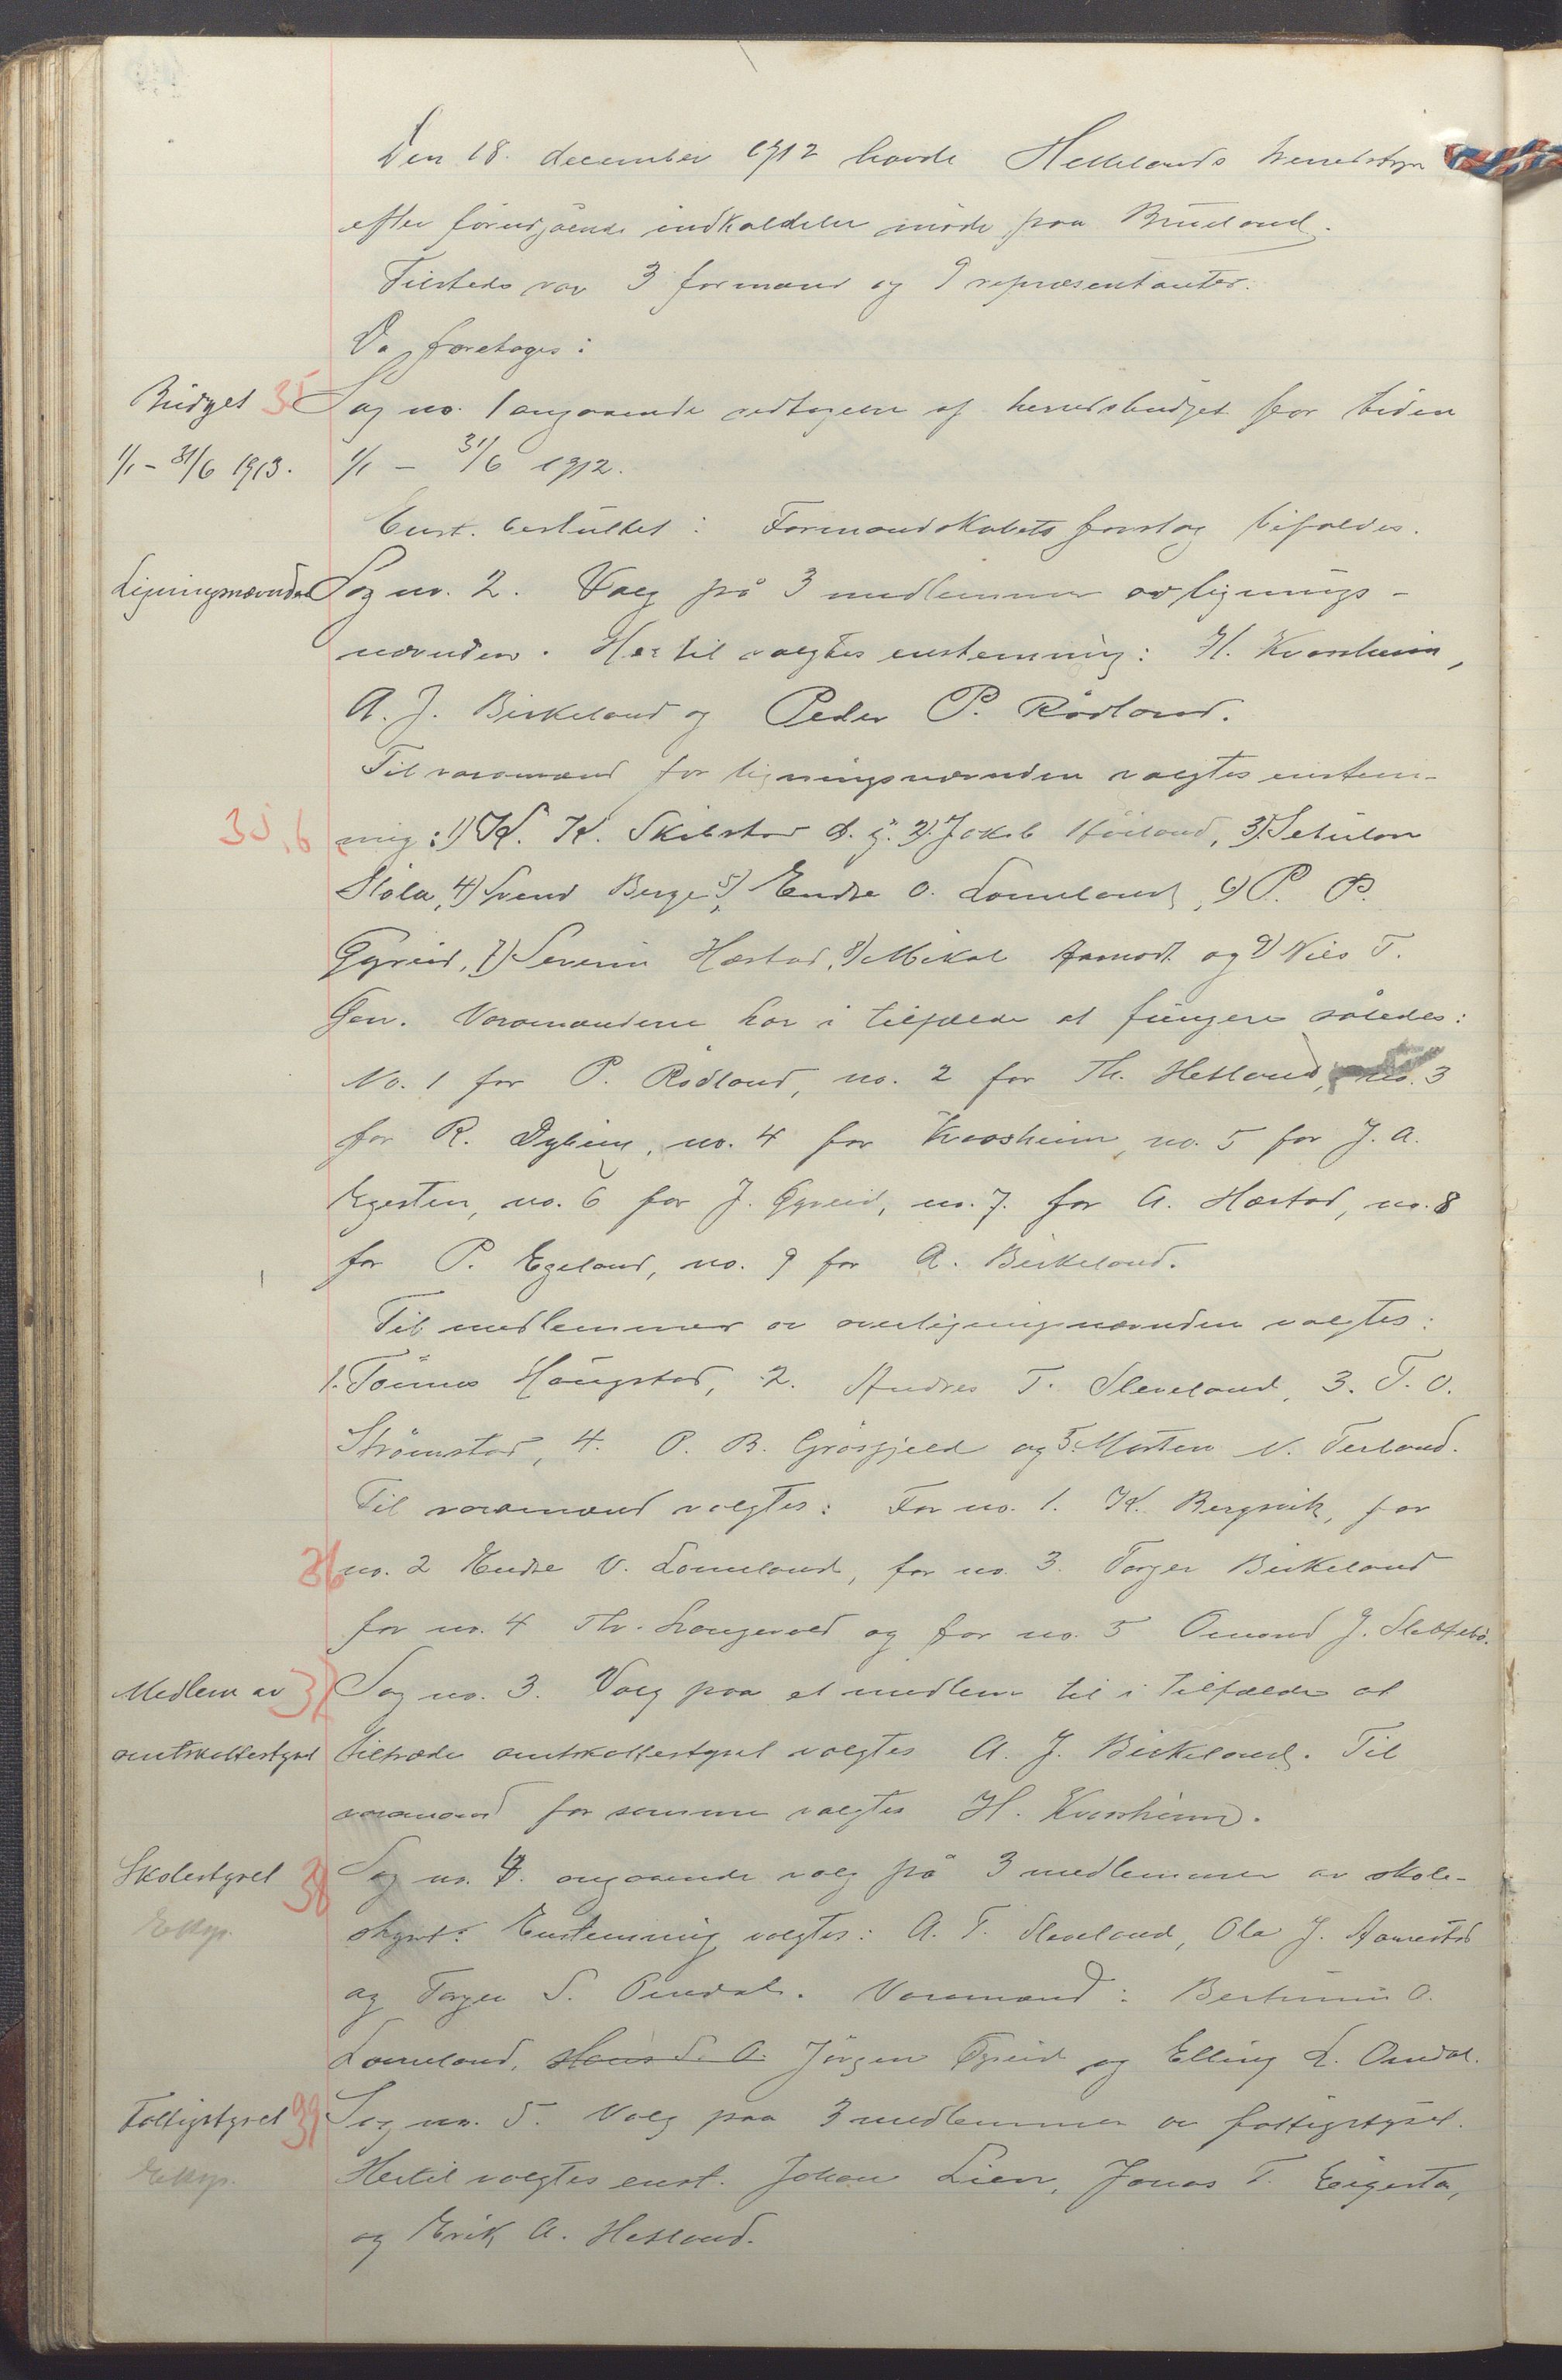 Den 18. december 1912 havde Hetlands herredstyre
efter forutgående indkaldelse møde paa Brueland.
Tilstede var 3 formænd og 9 repræsentanter.
Da foretoges:
Budget 35 Sag no. 1 angaaende vedtagelse af herredsbudget for tiden
1/1 - 31/6 1913. 1/1 - 31/6 1912.
Enst. besluttet: Formandskabets forslag bifaldes.
Ligningsnævnden Sag no. 2. Valg på 3 medlemmer av lignings-
nævnden. Hertil valgtes enstemmig: H. Kvassheim,
A. J. Birkeland og Peder P. Rødland.
Til varamænd for ligningsnævnden valgtes enstem-
35,6 mig: 1) K. K. Skibstad d. y. 2) Jakob Høiland, 3) Setulon
Slola, 4) Svend Berge 5) Endre O. Lomeland, 6) P. P.
Gyreid, 7) Severin Hæstad, 8) Mikal Aamodt og 9) Nils T.
Gen. Varamændene har i tilfælde at fungere således:
No. 1 for P. Rødland, no. 2 for Th. Hetland, no. 3
for R. Dybing, no. 4 for Kvassheim, no. 5 for J. A.
Egesten, no. 6 for J. Gyreid, no. 7. for A. Hæstad, no. 8
for P. Egeland, no. 9 for A. Birkeland.
Til medlemmer av overligningsnævnden valgtes:
1. Tønnes Haugstad, 2. Andres T. Sleveland, 3. T. O.
Strømstad, 4. P. B. Grøsfjeld og 5. Morten N. Terland.
Til varamænd valgtes: For no. 1. K. Bergsvik, for
36 no. 2 Endre O. Lomeland, for no. 3. Torger Birkeland
for no. 4 Th. Langevold og for no. 5 Omund J. Slettebø.
Medlem av 37 Sag no. 3. Valg paa et medlem til i tilfælde at
amtskattestyret tiltræde amtskattestyret valgtes A. J. Birkeland. Til
varamand for samme valgtes H. Kvassheim.
Skolestyret 38 Sag no. 4. angaaende valg på 3 medlemmer av skole-
Eksp. styret. Enstemmig valgtes: A. T. Sleveland, Ola J. Aamodt
og Torger S. Omdal. Varamænd: Bertinius O.
Lomeland, Hans d. A. Jörgen Gyreid og Elling L. Omdal.
Fattigstyret 39 Sag no. 5. Valg paa 3 medlemmer av fattigstyret.
Eksp. Hertil valgtes enst. Johan Lien, Jonas T. Eigesta,
og Erik A. Hetland.